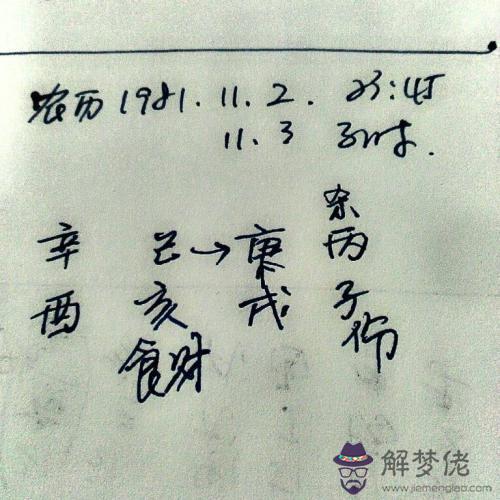 农历1981.11.2. 23:45
11.3 子时.
杀
辛 己→庚丙
酉 亥 戌 子
食财 伤
解梦佬
www.jiemenglao.com